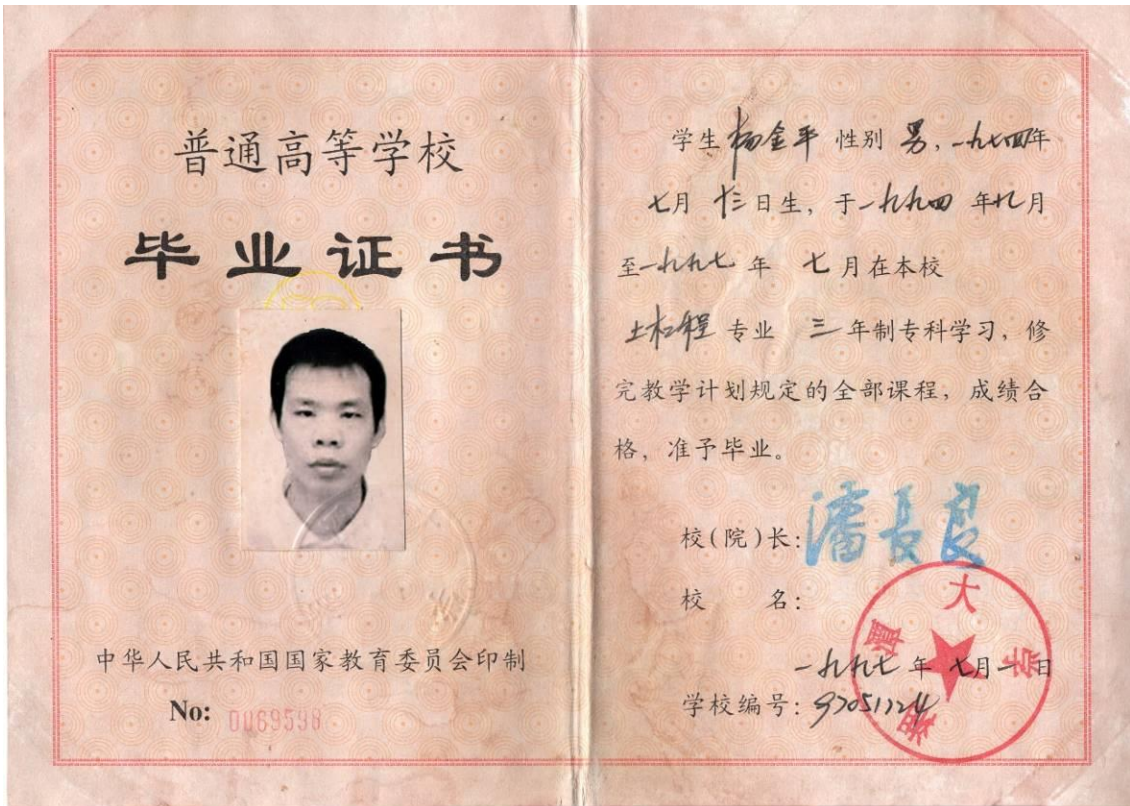 普通高等学校
毕业证书
中华人民共和国国家教育委员会印制
No: 0069598
学生 杨金平 性别 男，一九七四年
七月 十三日生，于一九九四 年九月
至一九九七 年 七月在本校
土木工程 专业 三年制专科学习，修
完教学计划规定的全部课程，成绩合
格，准予毕业。
校(院)长：潘长良
校 名：
湘潭大学
一九九七 年 七月一日
学校编号：97051124